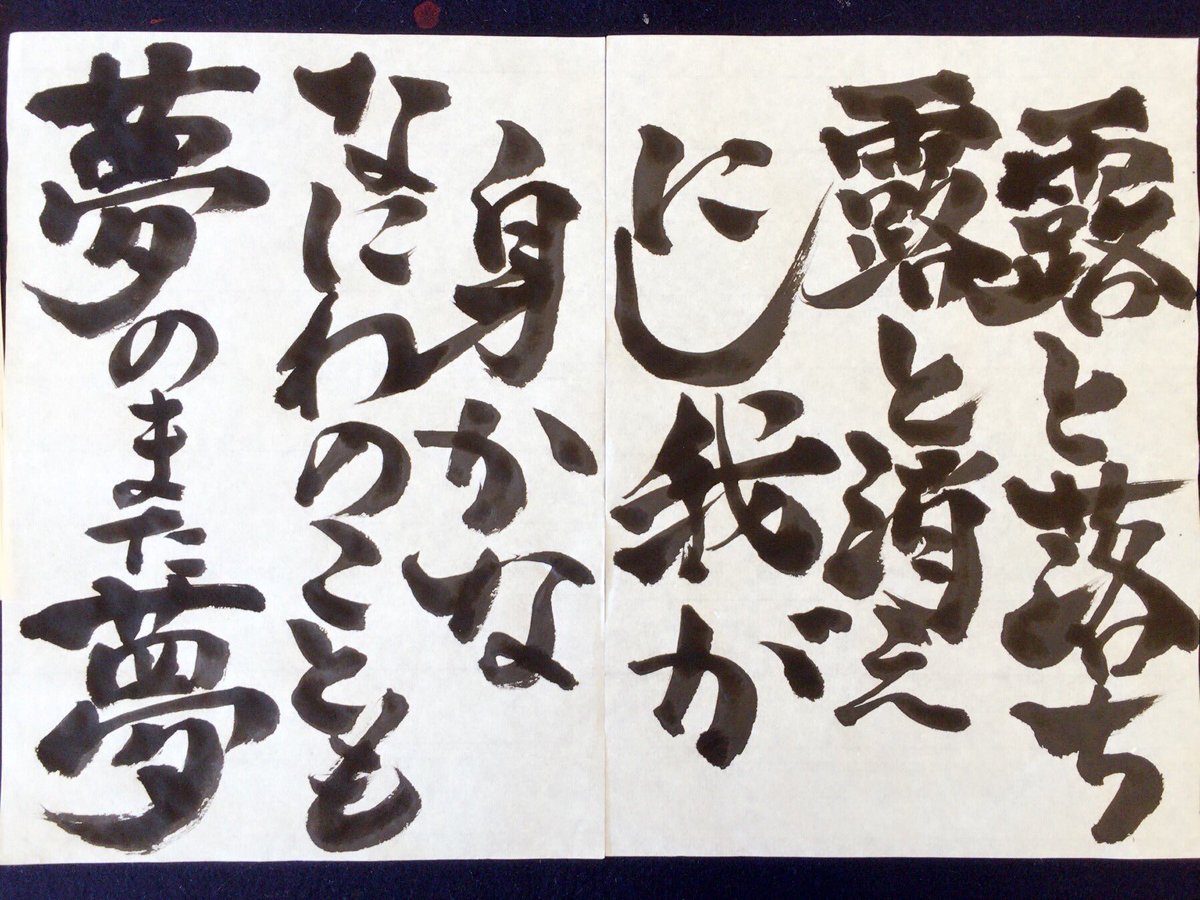 露と落ち
露と消え
にし我が
身かな
なにわのことも
夢のまた夢